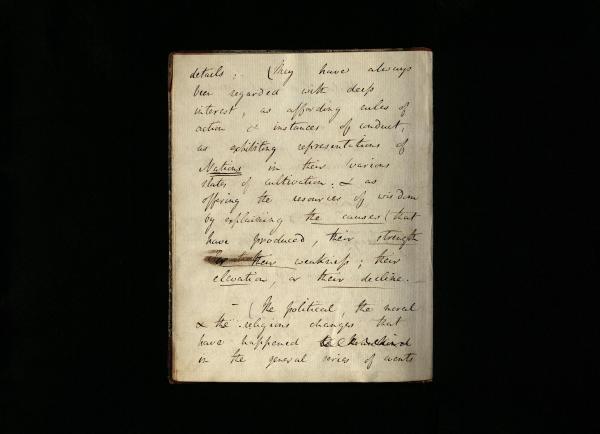 details: (They have always
been regarded with deep
interest, as affording rules of
action & instances of conduct,
as exhibiting representations of
Nations in their various
states of cultivation: & as
offering the resources of wisdom
by explaining the causes (that
have produced, their strength
or their weakness; their
elevation, or their decline.
– (The political, the moral
& the religious changes that
have happened to Mankind
in the general series of events